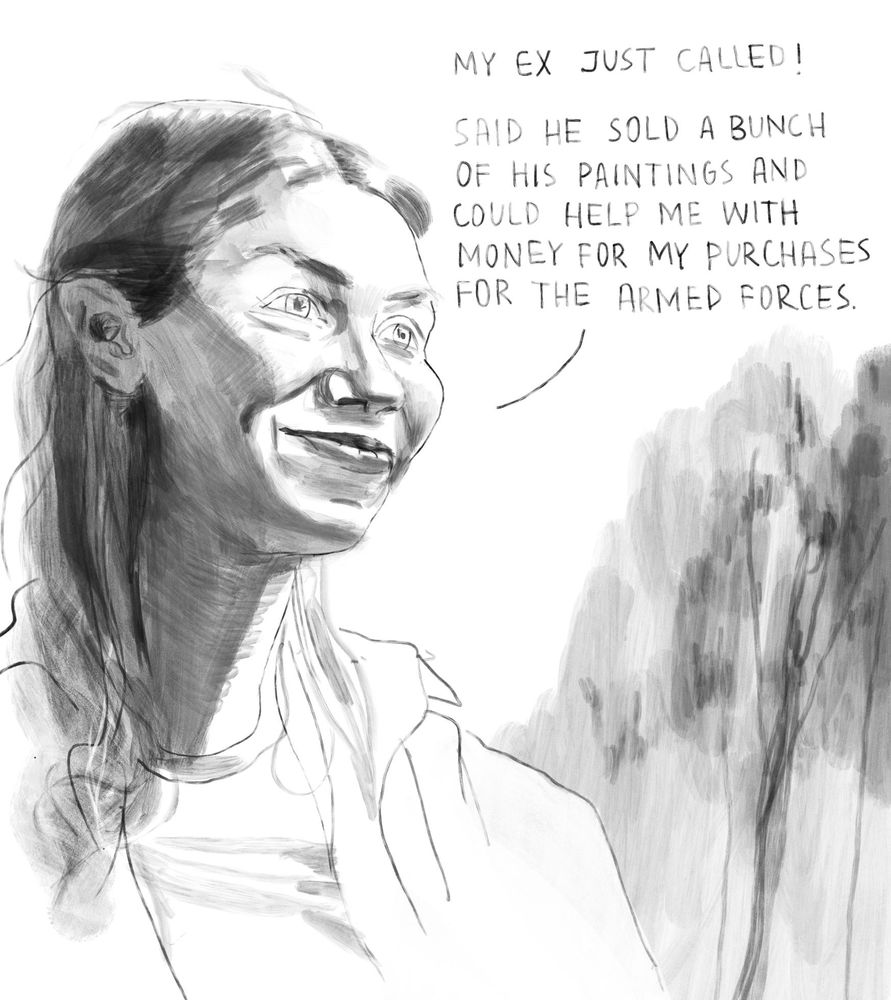 MY EX JUST CALLED!
SAID HE SOLD A BUNCH
OF HIS PAINTINGS AND
COULD HELP ME WITH
MONEY FOR MY PURCHASES
FOR THE ARMED FORCES.